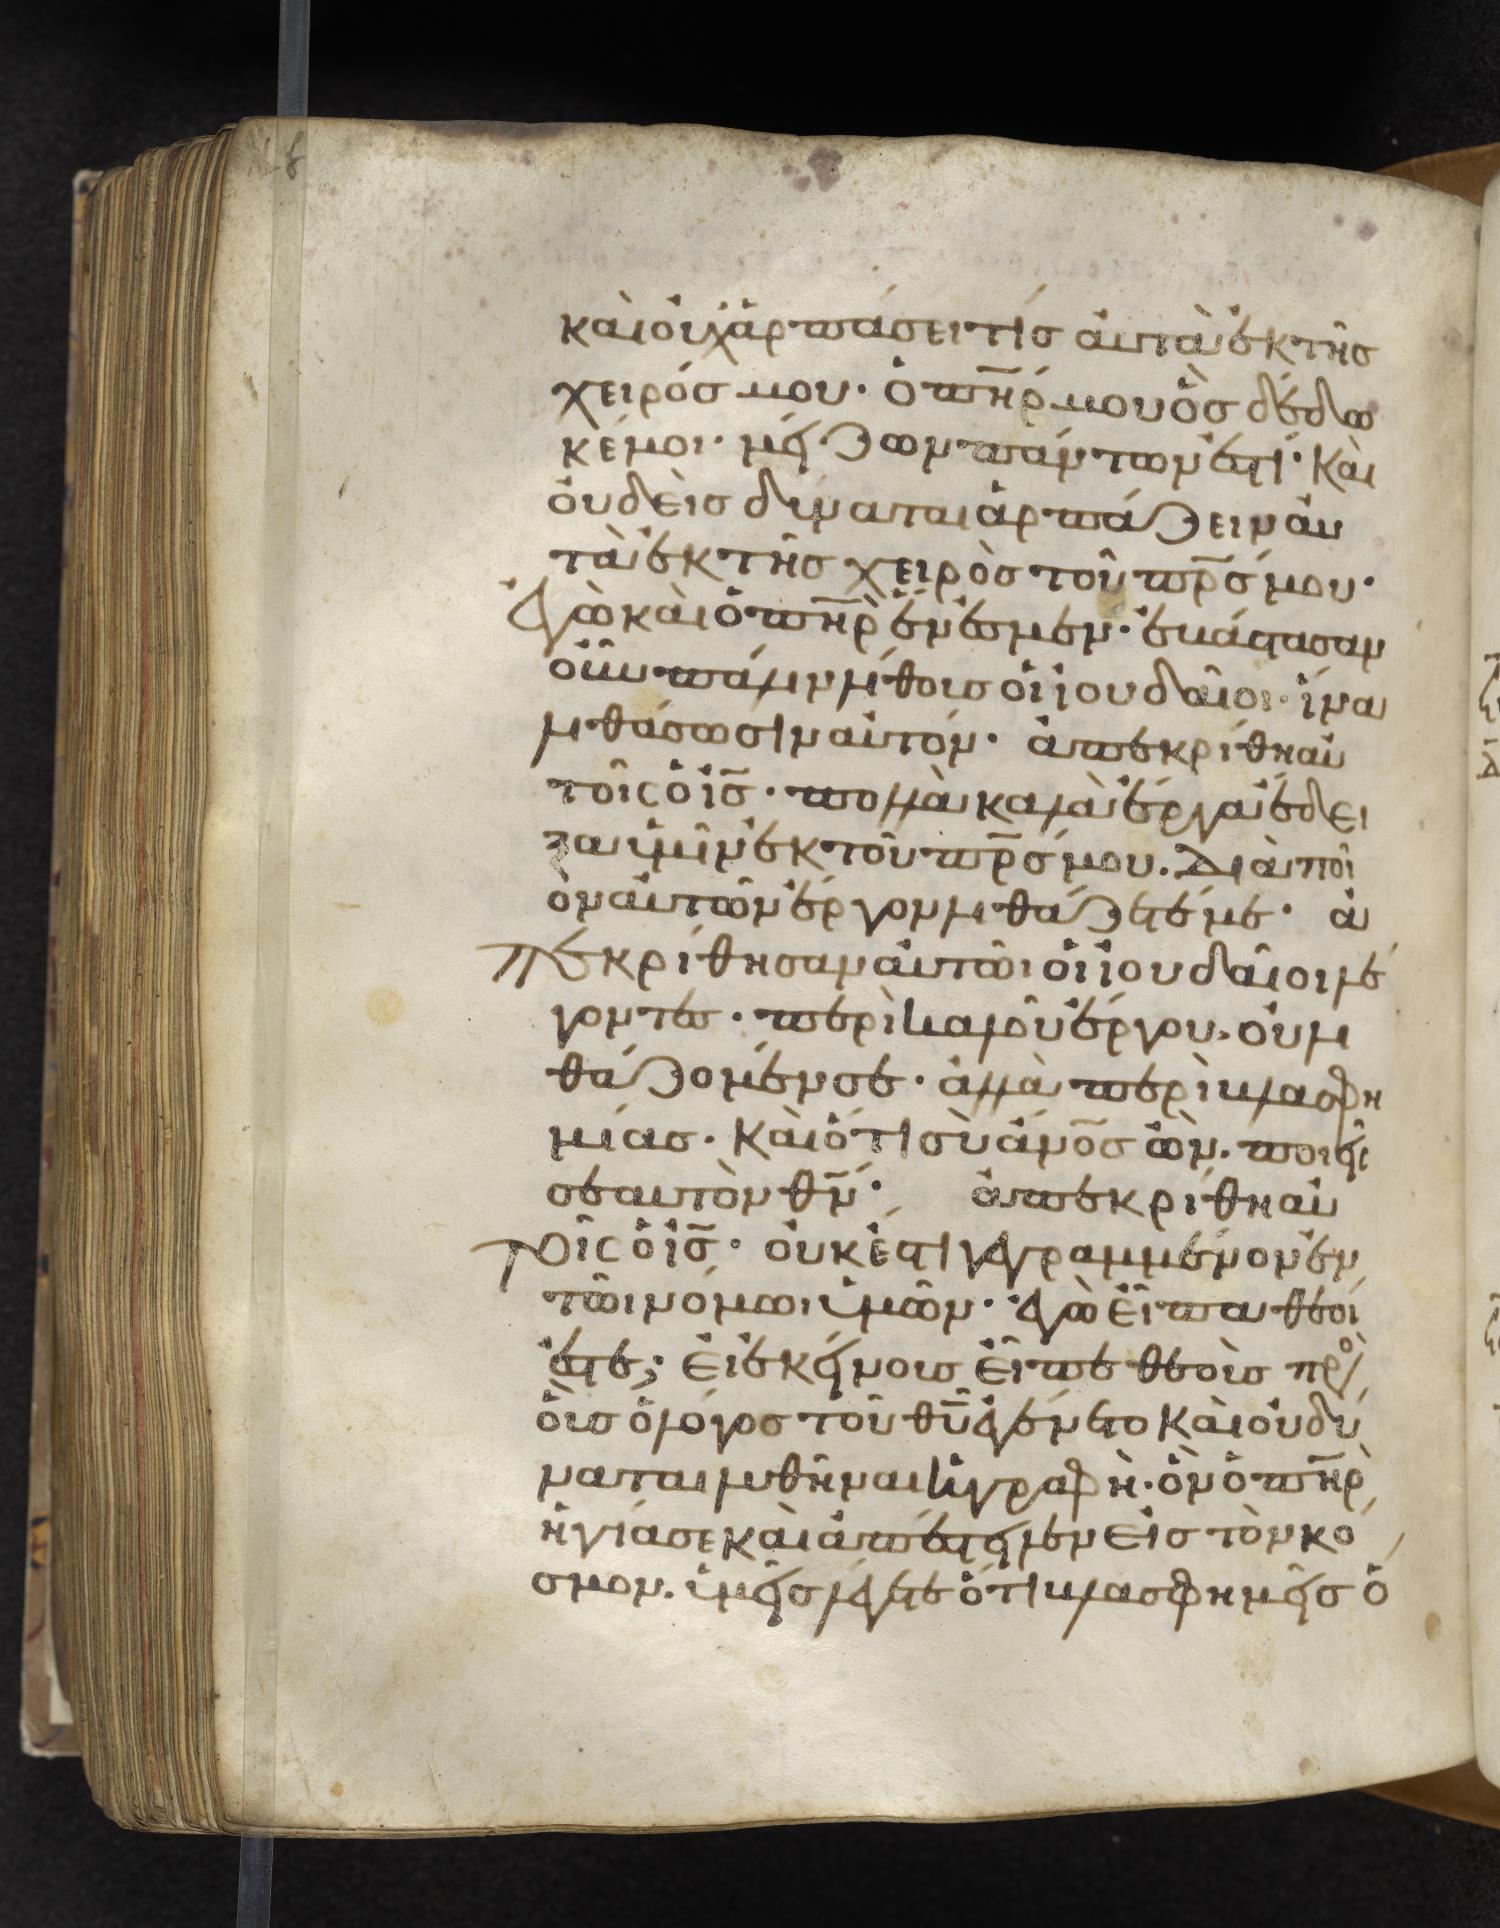 καὶ οὐχ ἁρπάσει τὶς αὐτὰ ἐκ τῆς
χειρός μου· ὁ π̅η̅ρ μου ὃς δέδω
κέ μοι· μείζων πάντων ἐστί· καὶ
οὐδεὶς δύναται ἁρπάζειν αὐ
τὰ ἐκ τῆς χειρὸς τοῦ π̅ρ̅ς μου·
ἐγὼ καὶ ὁ π̅η̅ρ ἕν ἐσμεν· ἐβάστασαν
οὖν πάλιν λίθοις οἱ ἰουδαῖοι· ἵνα
λιθάσωσιν αὐτόν· ἀπεκρίθη αὐ
τοῖς ὁ ι̅ς̅· πολλὰ καλὰ ἔργα ἔδει
ξα ὑμῖν ἐκ τοῦ π̅ρ̅ς μου. διὰ ποῖ
ον αὐτῶν ἔργον λιθάζετέ με· ἀ
πεκρίθησαν αὐτῶι οἱ ἰουδαῖοι λέ
γοντες· περὶ καλοῦ ἔργου. οὐ λι
θάζομέν σε· ἀλλὰ περὶ βλασφη
μίας· καὶ ὅτι σὺ ἄν̅ο̅ς ὢν. ποιεῖ
σεαυτὸν θ̅ν̅· ἀπεκρίθη αὐ
τοῖς ὁ ι̅ς̅· οὐκ ἔστι γεγραμμένον ἐν
τῶι νόμωι ὑμῶν· ἐγὼ εἶπα θεοί
ἐστε; εἰ ἐκείνοις εἶπε θεοὺς πρὸ
οἷς ὁ λόγος τοῦ θ̅υ̅ ἐγένετο καὶ οὐ δύ
ναται λυθῆναι ἡ γραφὴ· ὃν ὁ π̅η̅ρ
ἡγίασε καὶ ἀπέστειλεν εἰς τὸν κό
σμον. ὑμεῖς λέγετε ὅτι βλασφημεῖς ὅ